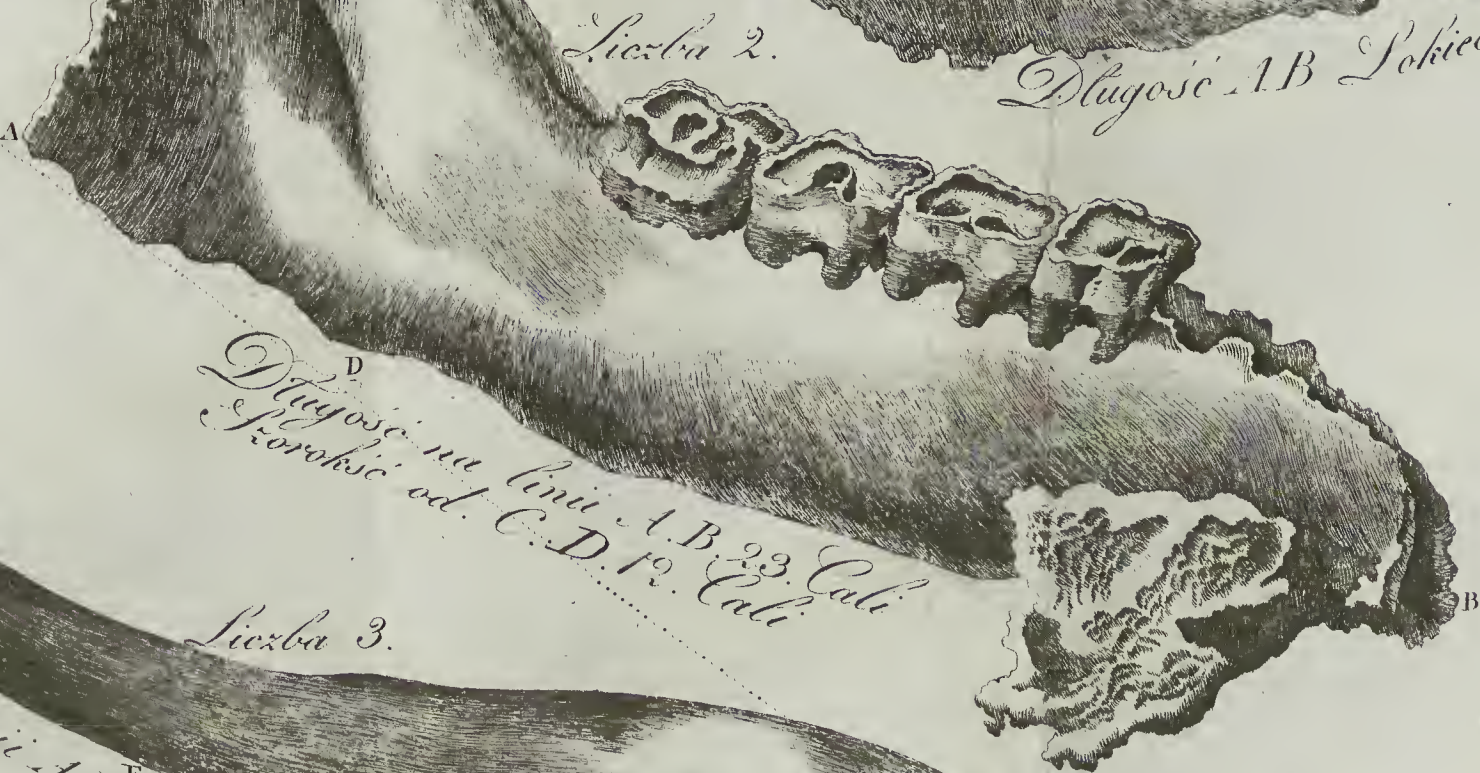 Liczba 2.
Długość A B Łokieć
A
D
Długość na linii A. B. 23. Cali
Szorokść od. C. D. 12. Cali
B
Liczba 3.